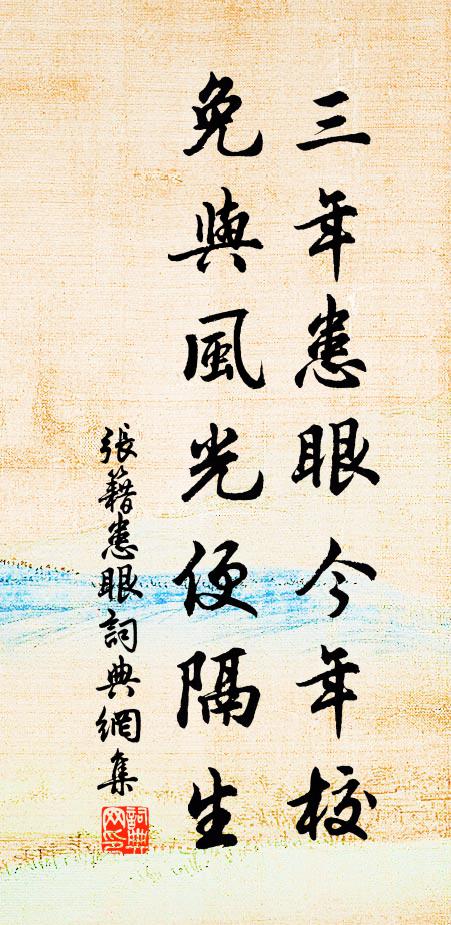 三年患眼今年校
免與風光便隔生
張籍患眼詞典網集
詞典
网印